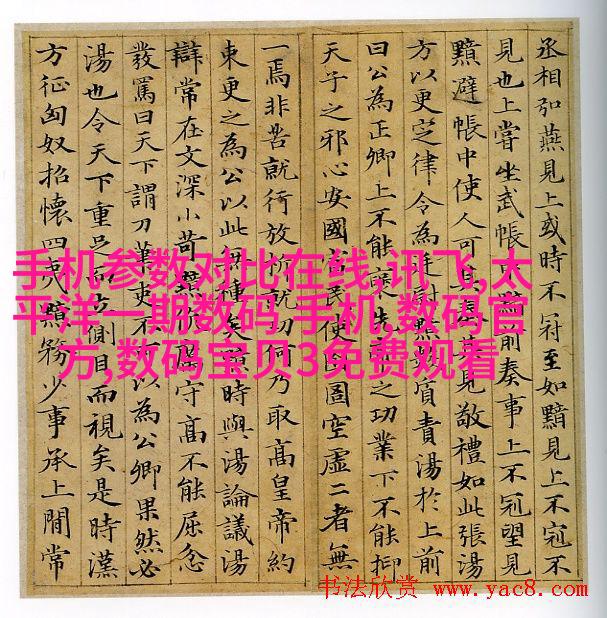 丞相弘燕見上或時不冠至如黯見上不冠不
見也上嘗坐武帳前奏事上不冠望見
黯避帳中使人可其奏其見敬禮如此張湯
方以更定律令為廷尉黯數質責湯於上前
曰公為正卿上不能襃先帝之功業下不能抑
天子之邪心安國富民使囹圄空虛二者無
一焉非苦就行放析就功何乃取高皇帝約
束更之為公以此無種矣黯時與湯論議湯
辯常在文深小苛黯伉厲守高不能屈忿
發罵曰天下謂刀筆吏不可以為公卿果然必
湯也令天下重足而立側目而視矣是時漢
方征匈奴招懷四夷黯務少事承上閒常
手机参数对比在线,讯飞,太
平洋一期数码,手机,数码官
方,数码宝贝3免费观看
书法欣赏 www.yac8.com